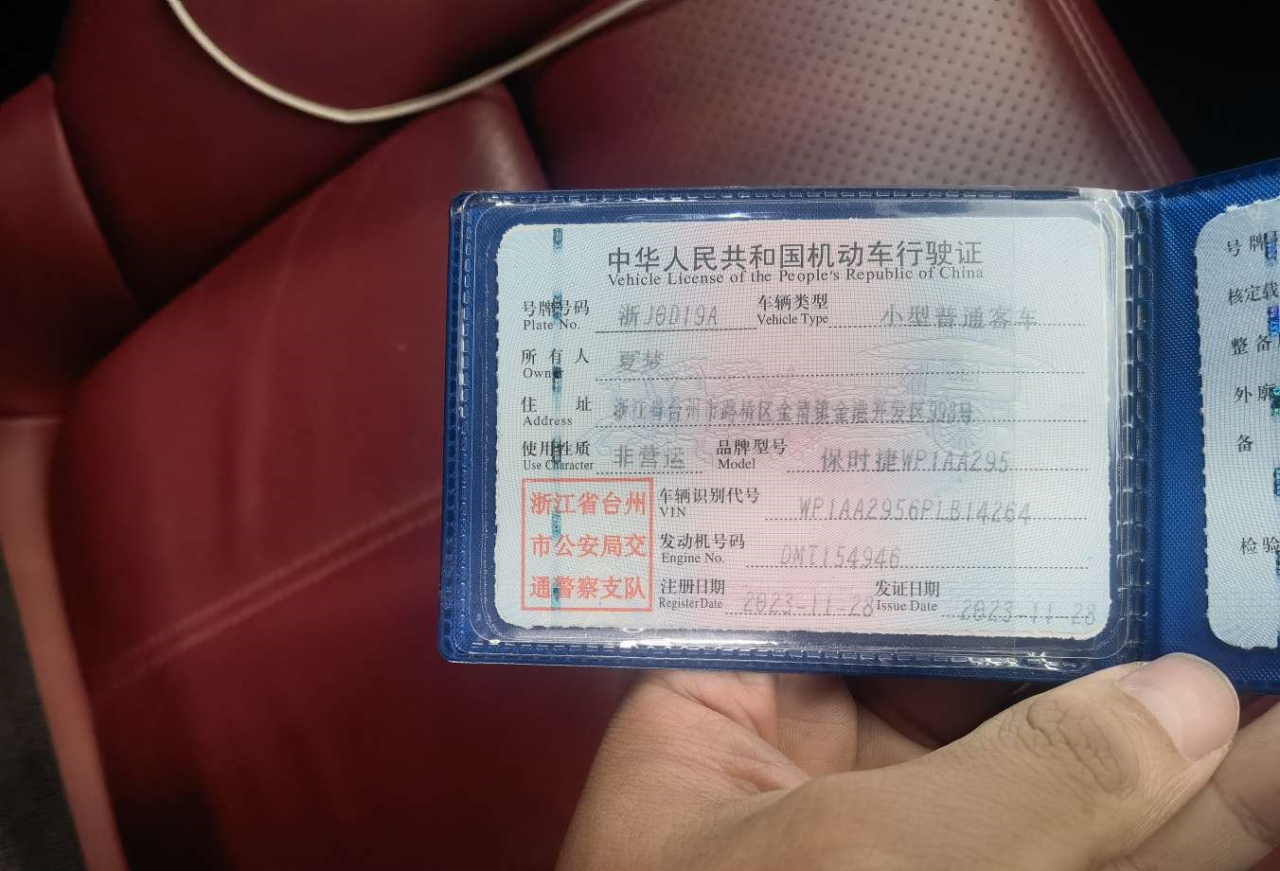 中华人民共和国机动车行驶证
Vehicle License of the People's Republic of China
号牌号码 浙J0D19A 车辆类型 小型普通客车
Plate No. Vehicle Type
所有人 夏梦
Owner
住址 浙江省台州市路桥区金清镇金港开发区998号
Address
使用性质 非营运 品牌型号 保时捷WP1AA295
Use Character Model
浙江省台州 车辆识别代号 WP1AA2956PLB14264
VIN
市公安局交 发动机号码 DMT154946
Engine No.
通警察支队 注册日期 2023-11-28 发证日期 2023-11-28
Register Date Issue Date
号牌
核定载
整备
外廓
备
检验